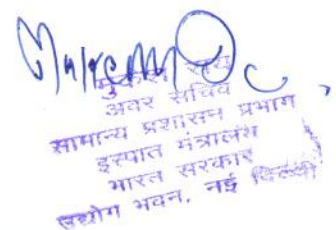 अवर सचिव
सामान्य प्रशासन प्रभाग
इस्पात मंत्रालय
भारत सरकार
उद्योग भवन, नई दिल्ली